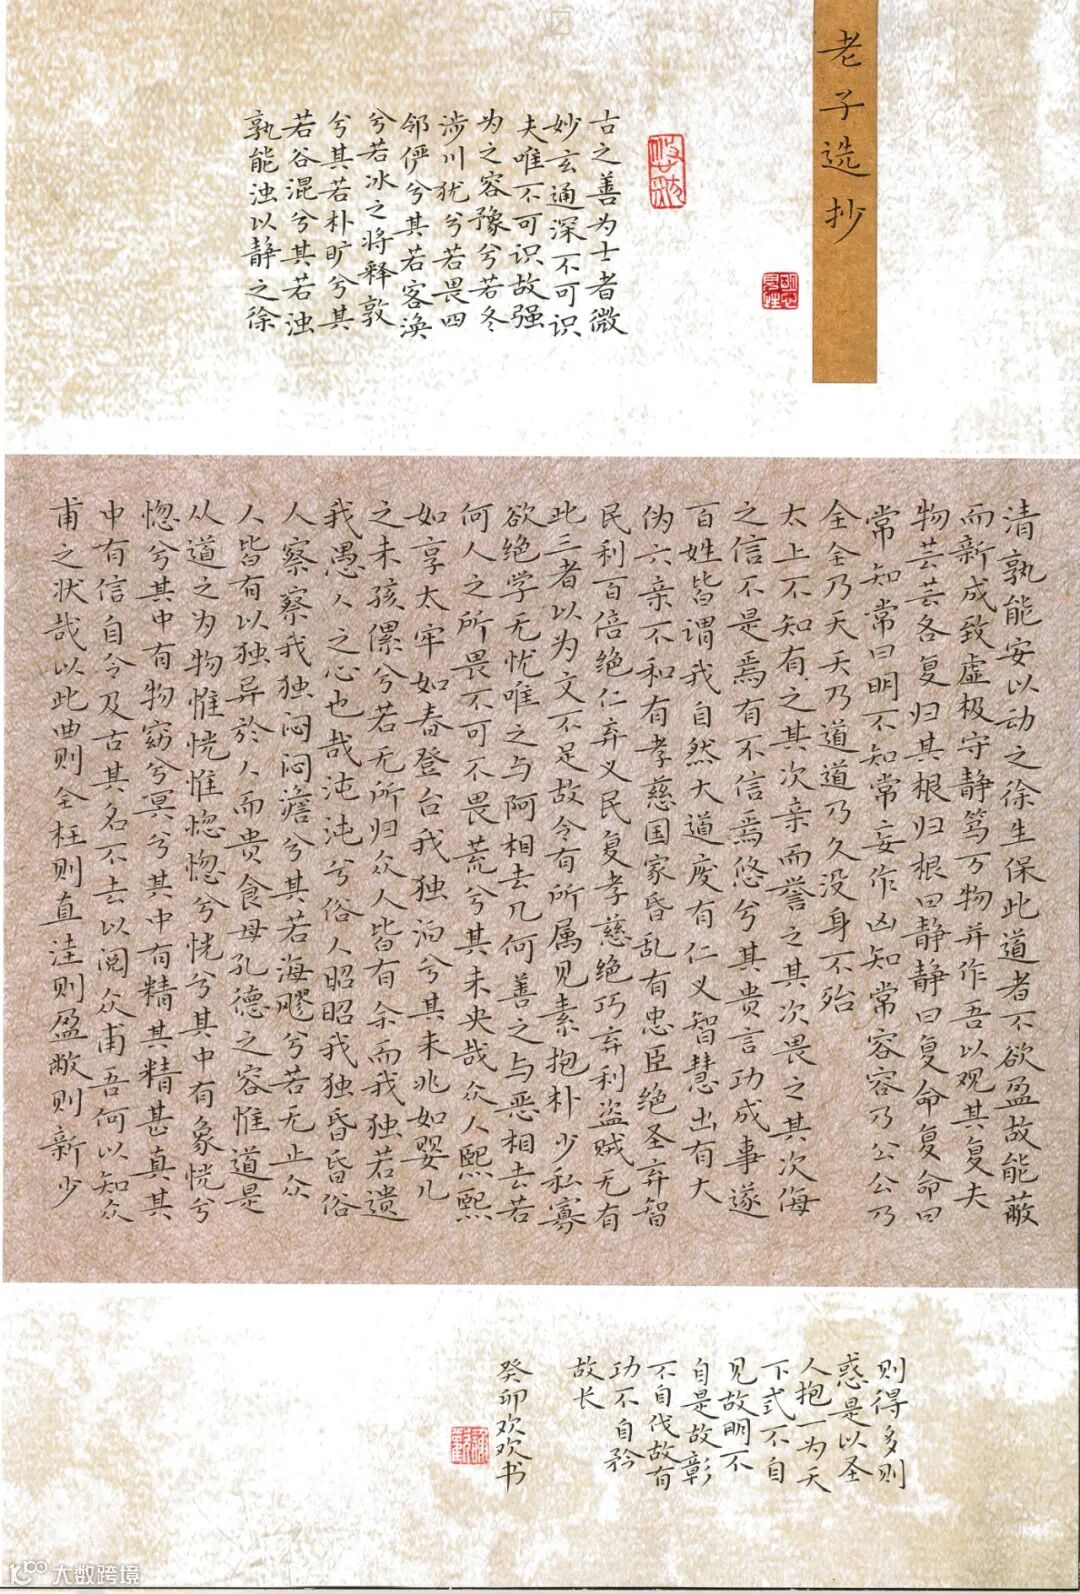 老子选抄
古之善为士者微
妙玄通深不可识
夫唯不可识故强
为之容豫兮若冬
涉川犹兮若畏四
邻俨兮其若客涣
兮若冰之将释敦
兮其若朴旷兮其
若谷混兮其若浊
孰能浊以静之徐
清孰能安以动之徐生保此道者不欲盈故能蔽
而新成致虚极守静笃万物并作吾以观其复夫
物芸芸各复归其根归根曰静静曰复命复命曰
常知常曰明不知常妄作凶知常容容乃公公乃
全全乃天天乃道道乃久没身不殆
太上不知有之其次亲而誉之其次畏之其次侮
之信不足焉有不信焉悠兮其贵言功成事遂
百姓皆谓我自然大道废有仁义智慧出有大
伪六亲不和有孝慈国家昏乱有忠臣绝圣弃智
民利百倍绝仁弃义民复孝慈绝巧弃利盗贼无有
此三者以为文不足故令有所属见素抱朴少私寡
欲绝学无忧唯之与阿相去几何善之与恶相去若
何人之所畏不可不畏荒兮其未央哉众人熙熙
如享太牢如春登台我独泊兮其未兆如婴儿
之未孩傫兮若无所归众人皆有余而我独若遗
我愚人之心也哉沌沌兮俗人昭昭我独昏昏俗
人察察我独闷闷澹兮其若海飂兮若无止众
人皆有以独异於人而贵食母孔德之容惟道是
从道之为物惟恍惟惚惚兮恍兮其中有象恍兮
惚兮其中有物窈兮冥兮其中有精其精甚真其
中有信自今及古其名不去以阅众甫吾何以知众
甫之状哉以此曲则全枉则直洼则盈敝则新少
则得多则
惑是以圣
人抱一为天
下式不自
见故明不
自是故彰
不自伐故有
功不自矜
故长
癸卯欢欢书
大数跨境